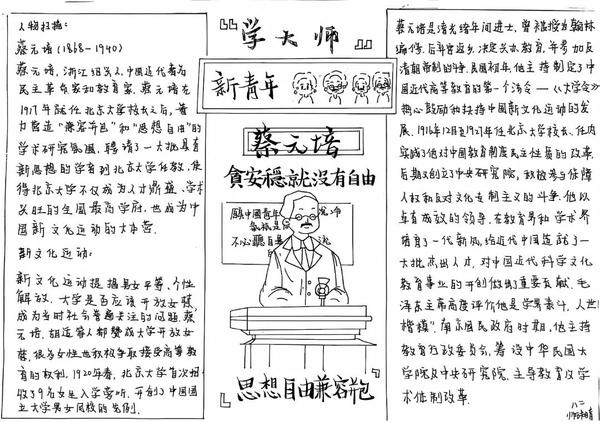 人物扫描:
蔡元培(1868-1940)
蔡元培,浙江绍兴人,中国近代著名
民主革命家和教育家。蔡元培在
1917年就任北京大学校长之后,着
力营造“兼容并包”和“思想自由”的
学术研究氛围,聘请了一大批具有
新思想的学者到北京大学任教,使
得北京大学不仅成为人才鼎盛、学术
兴旺的全国最高学府,也成为中
国新文化运动的大本营。
新文化运动:
新文化运动提倡男女平等、个性
解放,大学是否应该开放女禁,
成为当时社会普遍关注的问题,蔡
元培、胡适等人都赞成大学开放女
禁,很多女性也积极争取接受高等教
育的权利,1920年春,北京大学首次招
收了9名女生入学旁听,开创了中国国
立大学男女同校的先例。
“学大师”
新青年
蔡元培
貪安穩就沒有自由
願中國青年
不必聽自暴
“思想自由兼容并包”
蔡元培是清光绪年间进士,曾被授为翰林
编修,后弃官返乡,决定兴办教育,并参加反
清朝帝制的斗争,民国初年,他主持制定了中
国近代高等教育的第一个法令——《大学令》
热心鼓励和扶持中国新文化运动的发
展,1916年12月至1927年任北京大学校长,任内
实践了他对中国教育制度民主性质的改革,
后期又创立了中央研究院,积极参与保障
人权和反对文化专制主义的斗争。他以
卓有成效的领导,在教育界和学术界
培育了一代新风,给近代中国造就了一
大批杰出人才,对中国近代科学文化
教育事业的开创做出了重要贡献,毛
泽东主席高度评价他是“学界泰斗,人世
楷模”,南京国民政府时期,他主持
教育行政委员会,筹设中华民国大
学院及中央研究院,主导教育及学
术体制改革.
八二